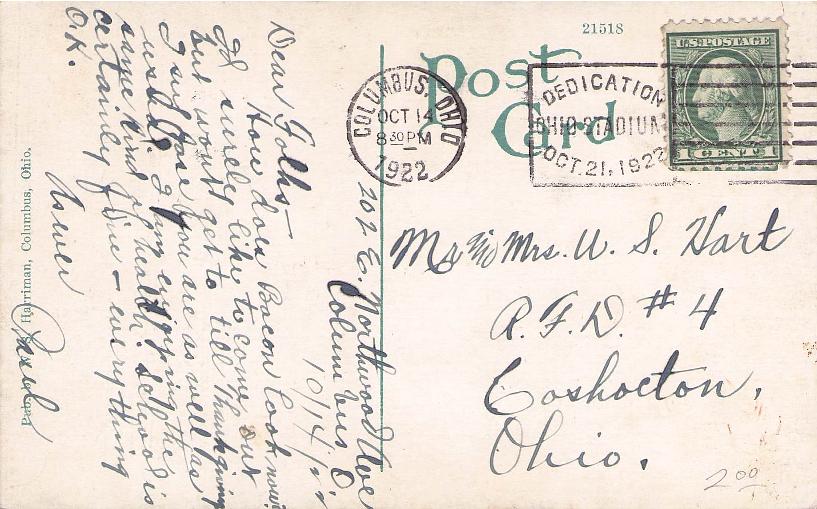 21518
Post
Card
U.S. POSTAGE
1 CENT 1
COLUMBUS, OHIO
OCT 14
8 30 PM
1922
DEDICATION
OHIO STADIUM
OCT. 21, 1922
Mr and Mrs. W. S. Hart
R. F. D. # 4
Coshocton,
Ohio.
2 00
202 E. Northwood Ave
Columbus O
10/14/22
Dear Folks—
How does Bacon look now?
I'd surely like to come out
but won't get to till Thanksgiving
I suppose you are as well as
usual. I am enjoying the
same kind of health. School is
certainly fine - everything
O.K.
Harriman, Columbus, Ohio.